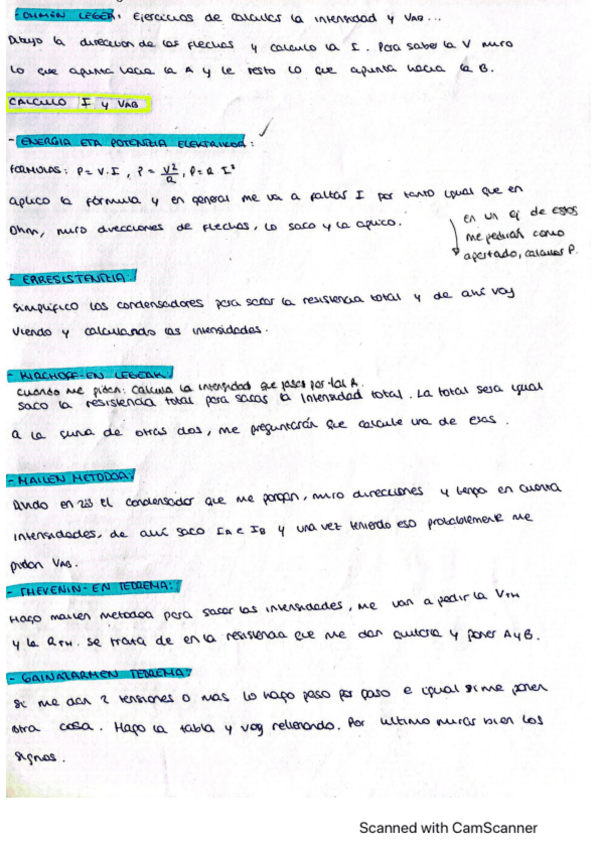 - OHMEN LEGEA: Ejercicios de calcular la intensidad y VAB...
Dibujo la direccion de las flechas y calculo la I. Para saber la V miro
lo que apunta hacia la A y le resto lo que apunta hacia la B.
CALCULO I y VAB
- ENERGIA ETA POTENTZIA ELEKTRIKOA:
FORMULAS: P = V·I, P = V²/R, P = R I²
aplico la fórmula y en general me va a faltar I por tanto igual que en
Ohm, miro direcciones de flechas, lo saco y la aplico.
en un ej de estos
me pedirán como
apartado, calcular P.
- ERRESISTENTZIA:
Simplifico los condensadores para sacar la resistencia total y de ahí voy
viendo y calculando las intensidades.
- KIRCHOFF-EN LEGEAK:
Cuando me piden: calcula la intensidad que pasa por tal A.
saco la resistencia total para sacar la intensidad total. La total sera igual
a la suma de otras dos, me preguntarán que calcule una de esas.
- MAILEN METODOA:
Divido en 2 el condensador que me pongan, miro direcciones y tengo en cuenta
intensidades, de ahí saco IA e IB y una vez teniendo eso probablemente me
pidan VAB.
- THEVENIN-EN TEOREMA:
Hago mailen metodoa para sacar las intensidades, me van a pedir la VTH
y la RTH. Se trata de en la resistencia que me dan quitarla y poner A y B.
- GAINEZARMEN TEOREMA:
Si me dan 2 tensiones o mas lo hago paso por paso e igual si me ponen
otra cosa. Hago la tabla y voy rellenando. Por ultimo mirar bien los
signos.
Scanned with CamScanner